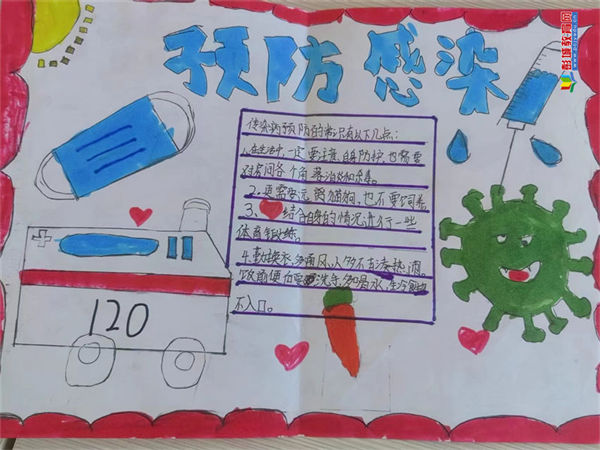 预防感染
传染病预防的常识有以下几点：
1.在生活中，一定要注意自身防护，也需要
对房间各个角落消效和杀毒。
2.更需要远离猫狗，也不要饲养
3、结合自身的情况进行一些
体育锻炼。
4.勤换衣，多通风，人多不去凑热闹。
饭前便后要洗手，多喝水，生冷
不入口。
120